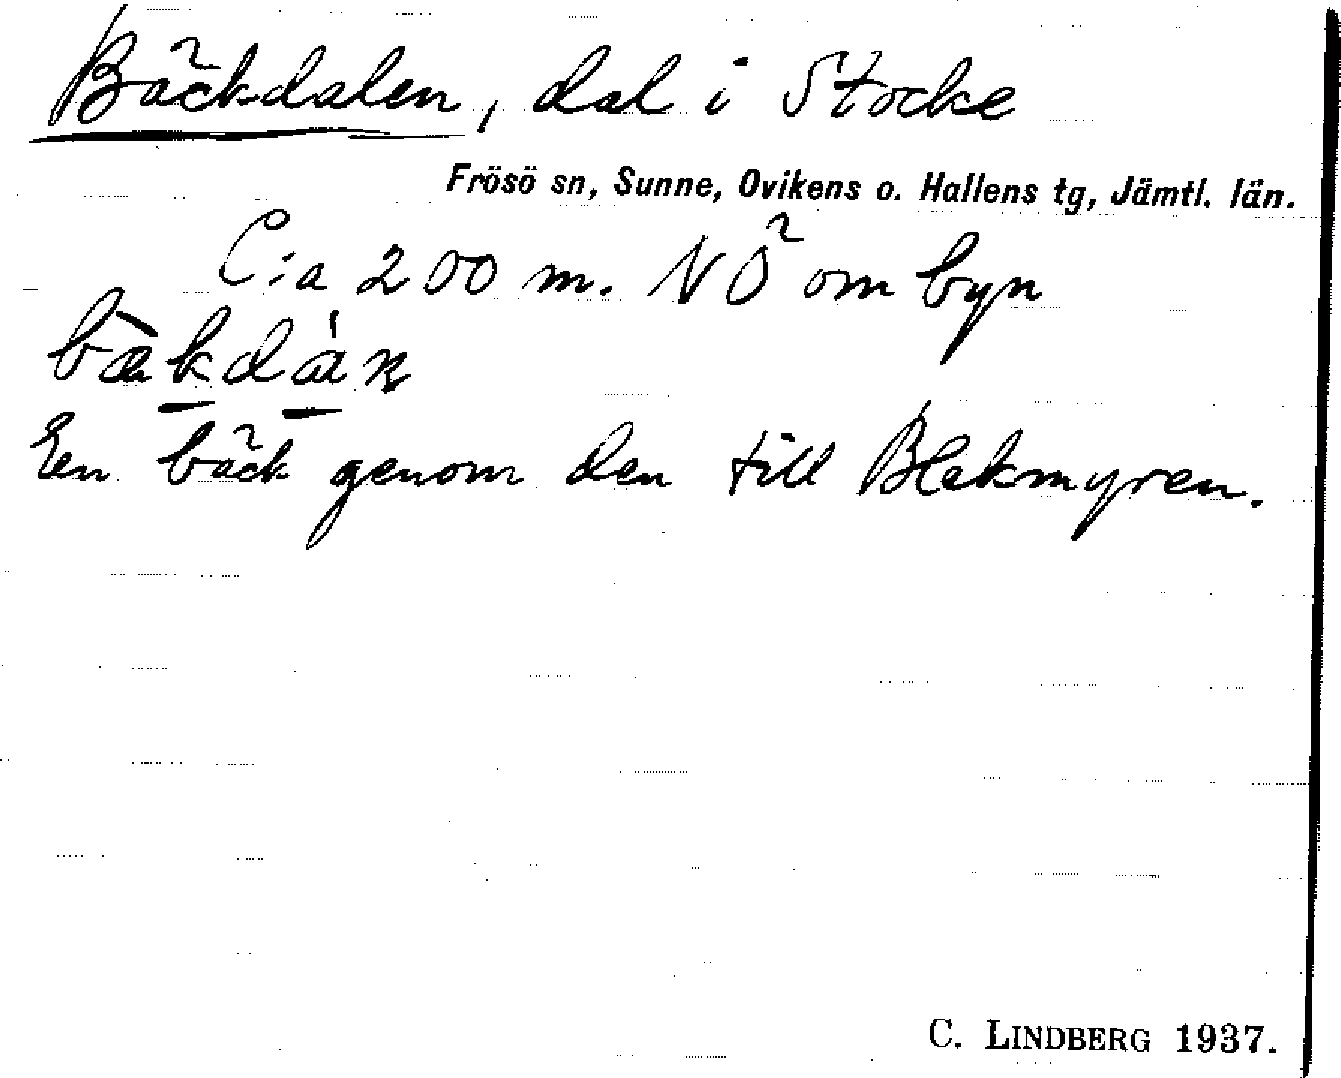 Bäckdalen, dal i Stocke
Frösö sn, Sunne, Ovikens o. Hallens tg, Jämtl. län.
C:a 200 m. NÖ om byn
bæ̀k̲dá̲n
En bäck genom den till Blekmyren.
C. LINDBERG 1937.